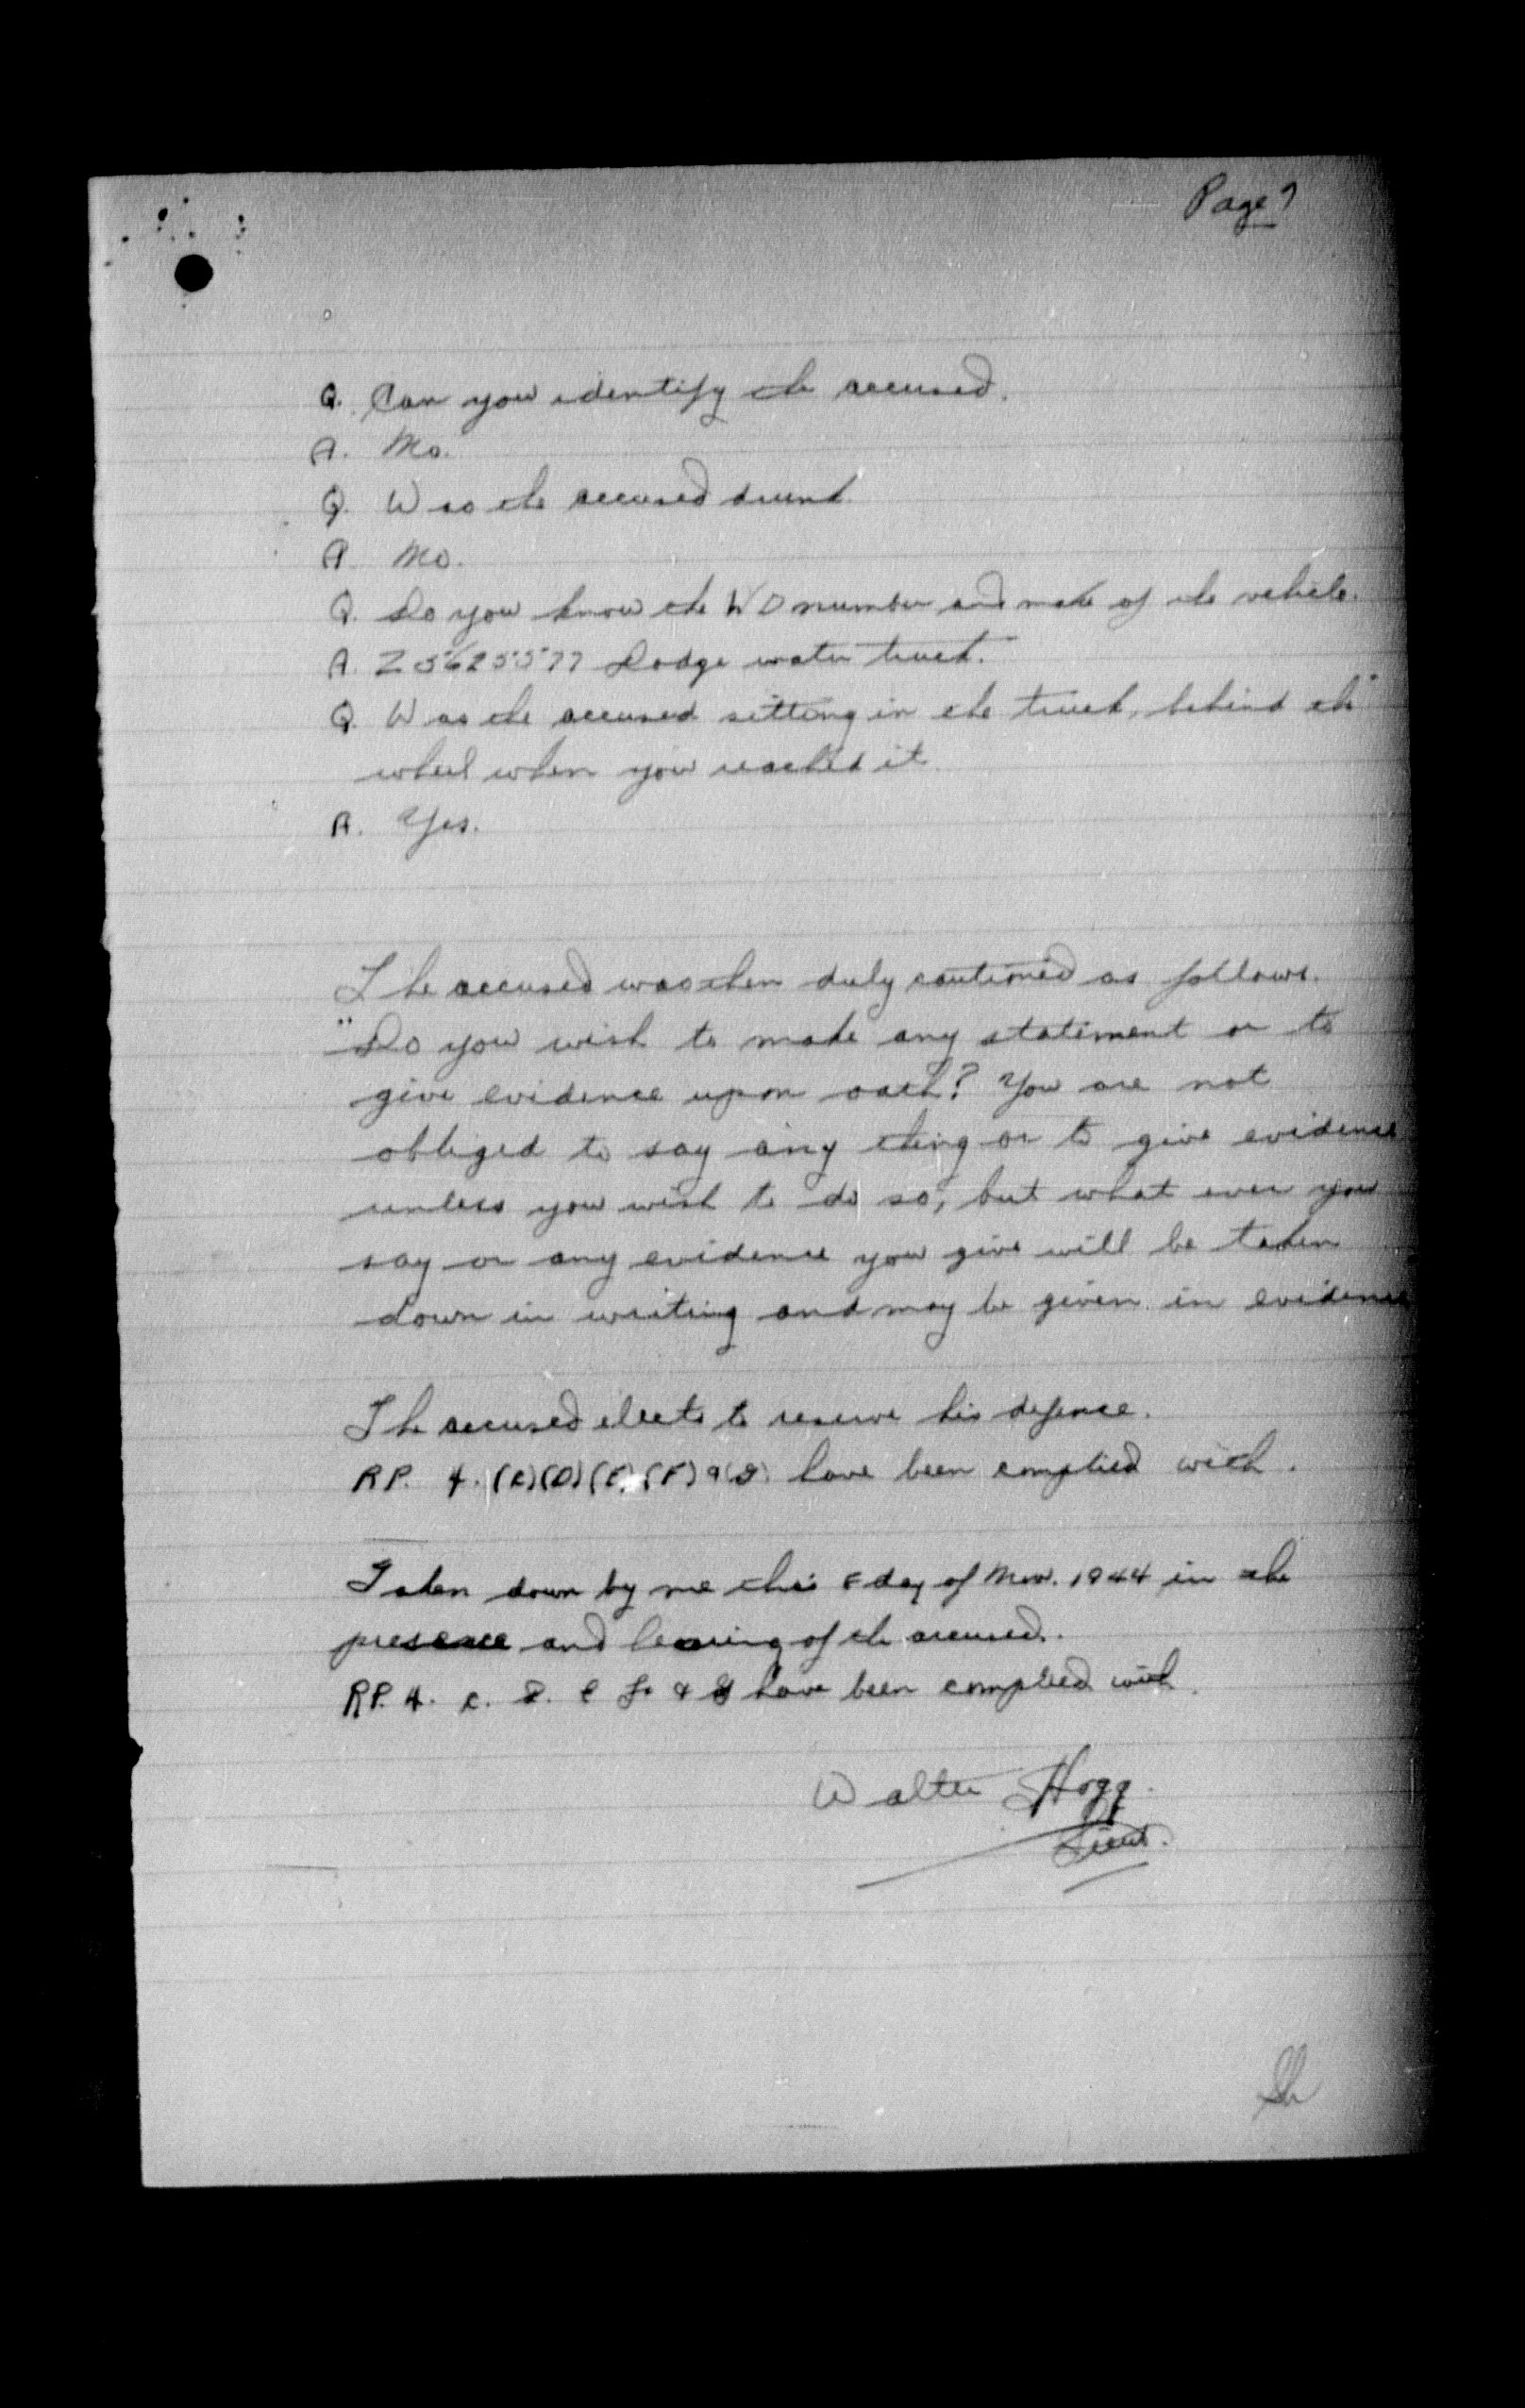 Page 7
Q. Can you identify the accused.
A. No.
Q. Was the accused drunk
A. No.
Q. Do you know the WD number and make of the vehicle.
A. Z5625577 Dodge water truck.
Q. Was the accused sitting in the truck, behind the
wheel when you reached it.
A. Yes.
The accused was then duly cautioned as follows.
"Do you wish to make any statement or to
give evidence upon oath? You are not
obliged to say any thing or to give evidence
unless you wish to do so, but what ever you
say or any evidence you give will be taken
down in writing and may be given in evidence
The accused elects to reserve his defence.
RP. 4. (C)(D)(E)(F) & (G) have been complied with.
Taken down by me this day of Nov. 1944 in the
presence and hearing of the accused.
RP. 4. C. D. E F. & G have been complied with.
Walter Hogg.
Lieut.